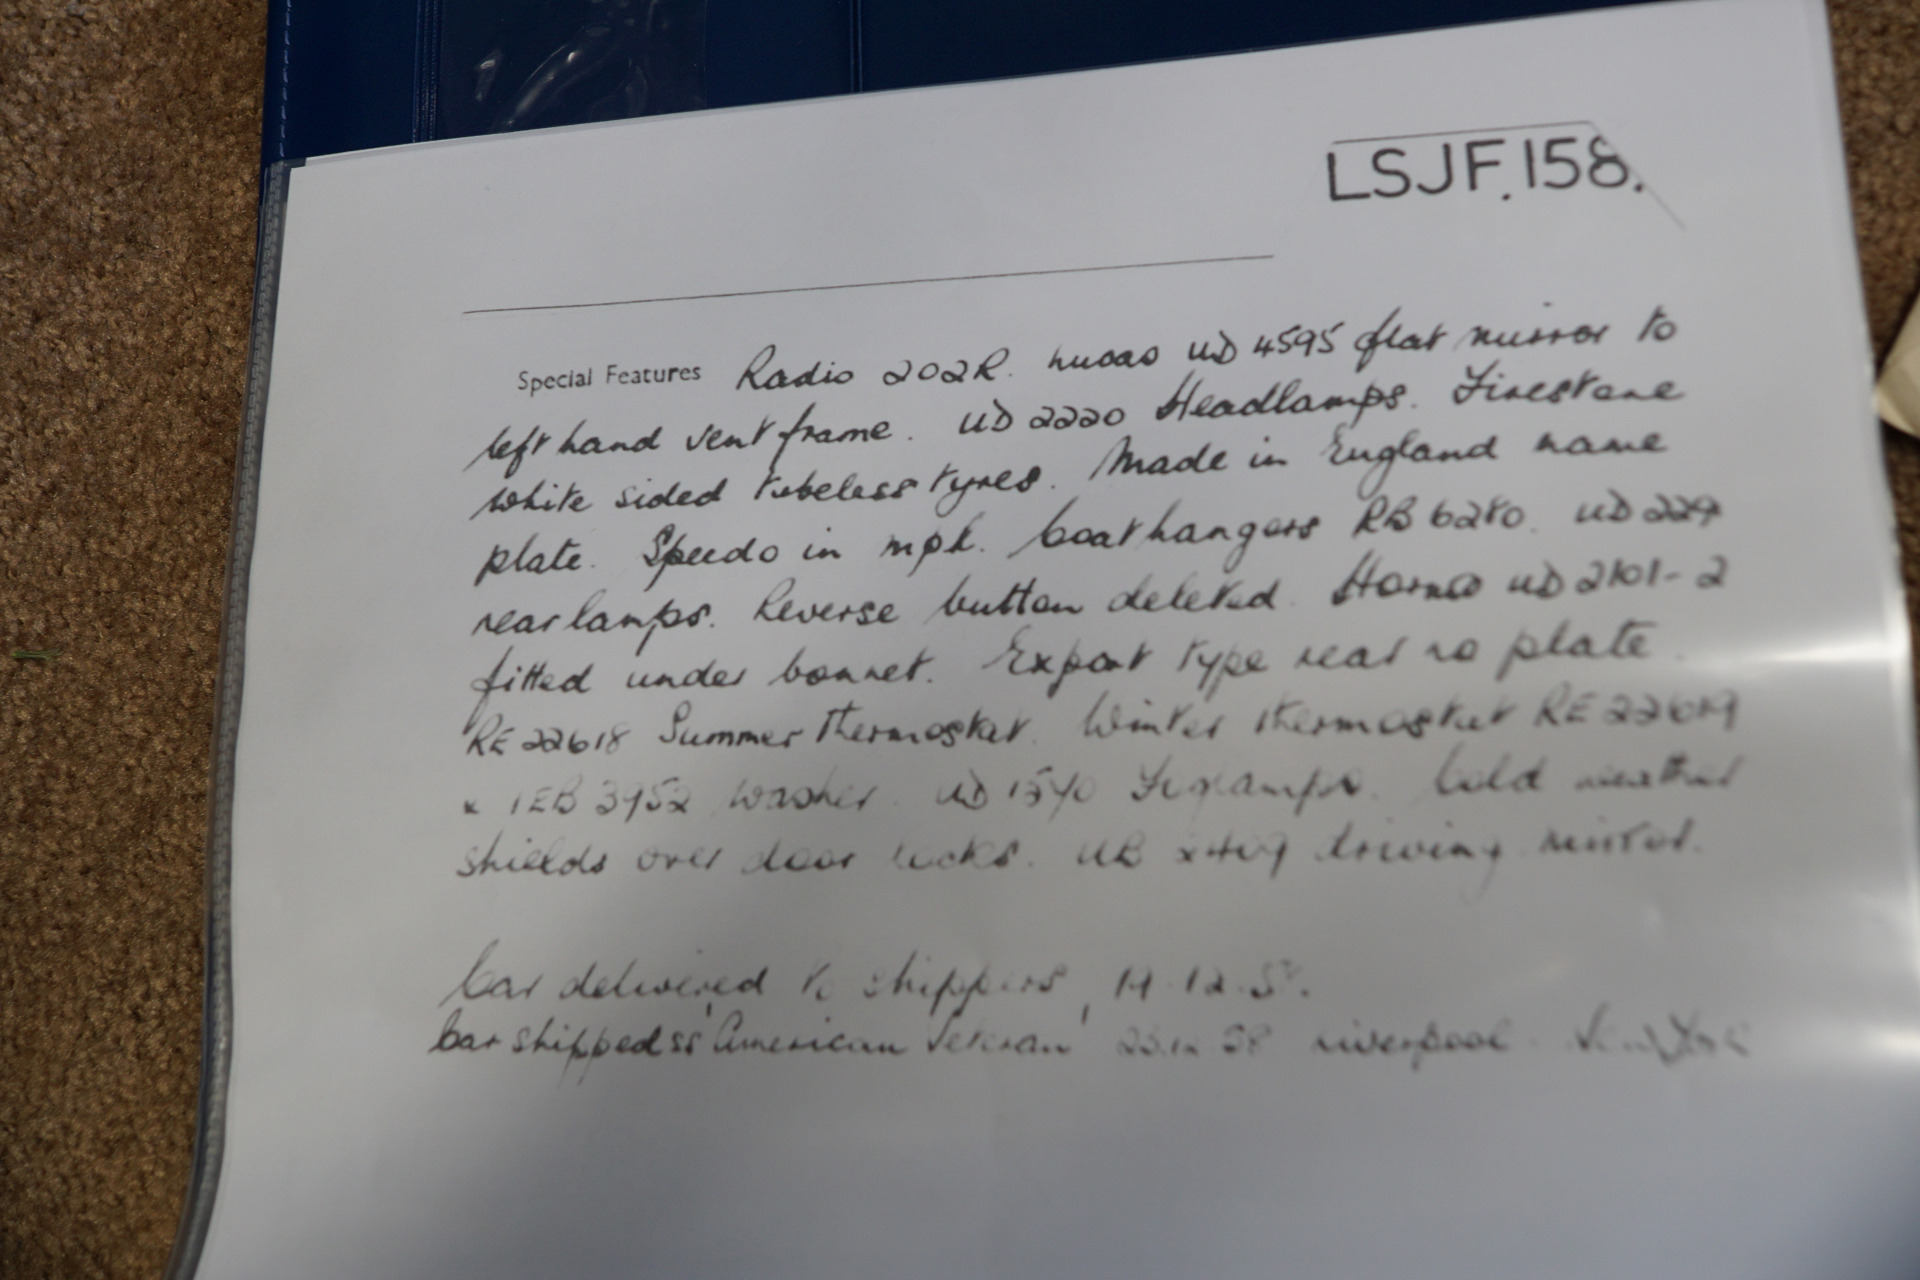 LSJF.158.
Special Features Radio 202R. Lucas UD 4595 flat mirror to
left hand vent frame. UD 2220 Headlamps. Firestone
white sided tubeless tyres. Made in England name
plate. Speedo in mph. Coathangers RB 6280. UD
rear lamps. Reverse button deleted. Horns UD 2101-2
fitted under bonnet. Export type rear no plate
RE 22618 Summer thermostat. Winter thermostat RE 22619
x IEB 3952 washer. UD 1540 Foglamps. Cold weather
shields over door locks. driving mirror.
Car delivered to shippers 19.12.58.
Car shipped ss 'American Veteran' 23.12.58 Liverpool - New York